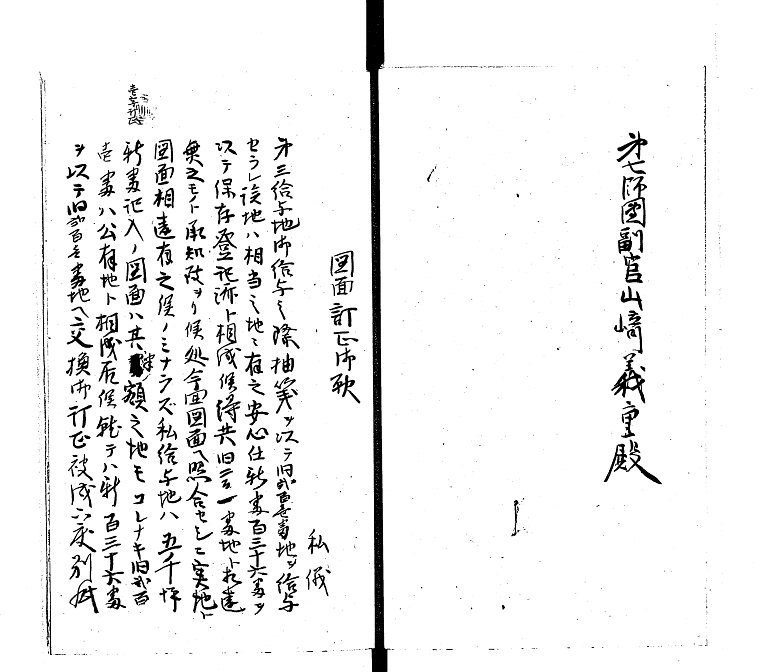 第七師團副官山崎義重殿
図面訂正御願
私儀
第三給与地御給与之際抽籤ヲ以テ旧弐百壱番地ヲ給与
セラレ該地ハ相当之地ニ有之安心仕新番百三十六番ヲ
以テ保存登記済ト相成候得共旧弐百一番地ト相違
無之モト承知致ヲリ候処今回図面ヘ照合セシニ実地ト
図面相違有之候ノミナラズ私給与地ハ五千坪
新番記入ノ図面ハ其額之地モコレナキ旧弐百
壱番ハ公有地ト相成居候就テハ新百三十六番
ヲ以テ旧弐百壱番地ヘ交換御訂正被成下度別紙